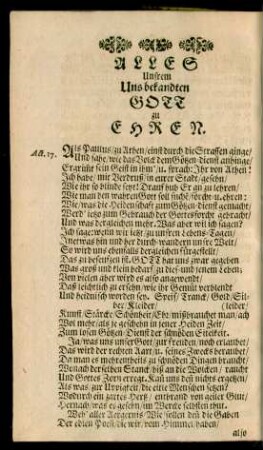 ALLES
Unsrem
Uns bekandten
GOTT
zu
EHREN.
Act. 17.
Als Paulus zu Athen einst durch die Strassen ginge/
Und sahe/ wie das Volck dem Götzen-dienst anhinge/
Ergrimte sein Geist in ihm/ u. sprach: Ihr von Athen!
Ich habe mit Verdruß in eurer Stadt gesehn/
Wie ihr so blinde seyt! Drauf hub Er an zu lehren/
Wie man den wahren Gott soll suche/ förche u. ehren:
Wie/ was die Heidenschafft zum Götzen-dienst gemacht/
Werd' ietzo zum Gebrauch der Gottesforcht gebracht/
Und was dergleichen mehr. Was aber wil ich sagen?
Ich sage: wenn wir ietz zu unsren Lebens-Tagen/
So wird uns ebenfalls dergleichen fürgestellt/
Das zu beseufzen ist. GOTT hat uns zwar gegeben
Was groß und klein bedarf zu dieß und jenem Leben;
Von vielen aber wird es also angewendt/
Daß leichtlich zu ersehn/ wie ihr Gemüt verblendt
Und heidnisch worden sey. Speiß/ Tranck/ Gold/ Silber/ Kleider/
(leider/
Kunst/ Stärcke/ Schönheit/ Ehr mißbrauchet man/ ach
Viel mehr/ als je geschehn in jener Heiden Zeit/
Zum losen Götzen-Dienst der schnöden Eitelkeit.
Ja/ was uns unser Gott/ zur freuden noch erlaubet/
Das wird der rechten Aart/ u. seines Zwecks beraubet/
Da man es mehrentheils zu schnöden Dingen braucht/
Wonach derselben Stanck biß an die Wolcken raucht
Und Gottes Zorn erreget. Kan uns deß nichts ergetzen/
Als was zur Uppigkeit/ die eitle Menschen setzen?
Wodurch ein gantzes Hertz/ entbrandt von geiler Glut/
Hernach/ was es gesehn/ im Wercke selbsten thut.
Weh' aller Aergernis! Wie sollen diß die Gaben
Der edlen Poesi/ die wir vom Himmel haben/
also